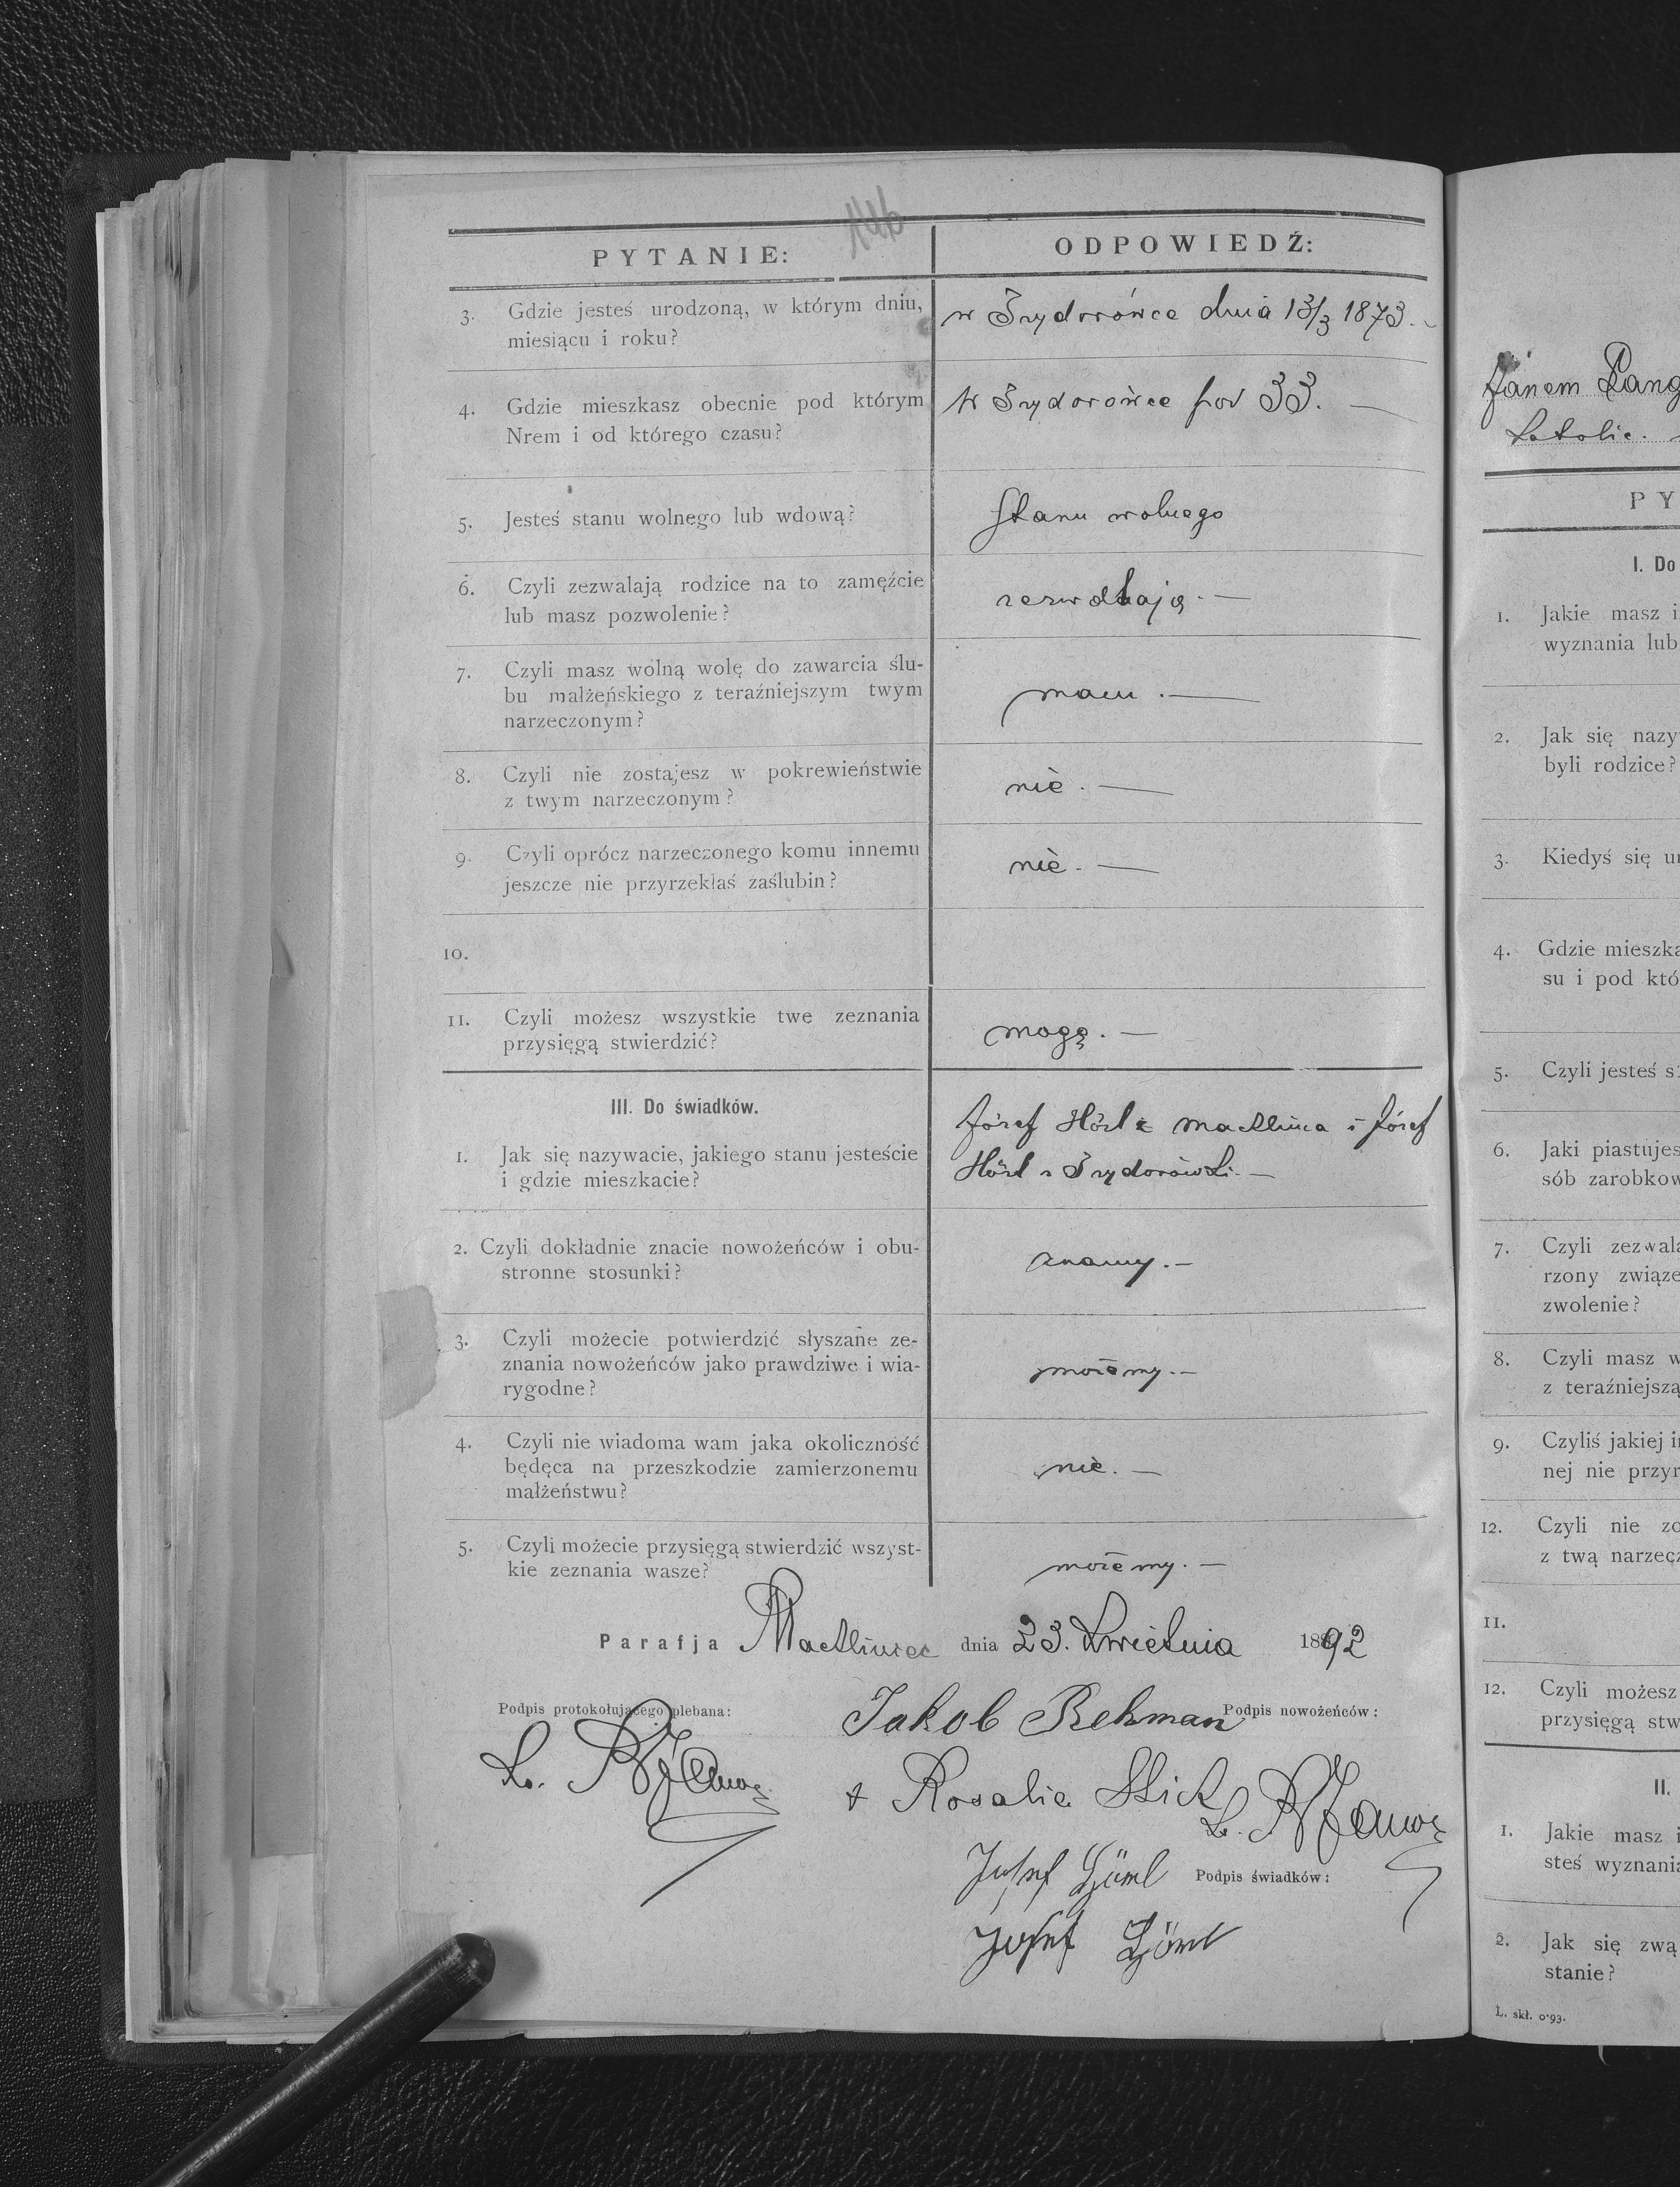 146
PYTANIE:
ODPOWIEDŹ:
3. Gdzie jesteś urodzoną, w którym dniu,
miesiącu i roku?
w Izydorówce dnia 13/3 1873.
4. Gdzie mieszkasz obecnie pod którym
Nrem i od którego czasu?
W Izydorówce pod 33. —
5. Jesteś stanu wolnego lub wdową?
Stanu wolnego
6. Czyli zezwalają rodzice na to zamęźcie
lub masz pozwolenie?
zezwalają. —
7. Czyli masz wolną wolę do zawarcia ślu-
bu małżeńskiego z teraźniejszym twym
narzeczonym?
mam. —
8. Czyli nie zostajesz w pokrewieństwie
z twym narzeczonym?
nie. —
9. Czyli oprócz narzeczonego komu innemu
jeszcze nie przyrzekłaś zaślubin?
nie. —
10.
11. Czyli możesz wszystkie twe zeznania
przysięgą stwierdzić?
mogę. —
III. Do świadków.
1. Jak się nazywacie, jakiego stanu jesteście
i gdzie mieszkacie?
Józef Hörl z Machlińca i Józef
Hörl z Izydorówki. —
2. Czyli dokładnie znacie nowożeńców i obu-
stronne stosunki?
znamy. —
3. Czyli możecie potwierdzić słyszane ze-
znania nowożeńców jako prawdziwe i wia-
rygodne?
możemy. —
4. Czyli nie wiadoma wam jaka okoliczność
będęca na przeszkodzie zamierzonemu
małżeństwu?
nie. —
5. Czyli możecie przysięgą stwierdzić wszyst-
kie zeznania wasze?
możemy. —
Parafja Machliniec dnia 23. Kwietnia 1892
Podpis protokołującego plebana:
Jakob Rehman
Podpis nowożeńców:
+ Rosalia
Josef
Podpis świadków:
Josef
Janem
katolic.
PY
I. Do
1. Jakie masz i
wyznania lub
2. Jak się nazy
byli rodzice?
3. Kiedyś się u
4. Gdzie mieszka
su i pod któ
5. Czyli jesteś s
6. Jaki piastujes
sób zarobkow
7. Czyli zezwala
rzony związe
zwolenie?
8. Czyli masz w
z teraźniejszą
9. Czyliś jakiej i
nej nie przyr
12. Czyli nie zo
z twą narzecz
11.
12. Czyli możesz
przysięgą stw
II.
1. Jakie masz i
steś wyznania
2. Jak się zwą
stanie?
L. skł. 0·93.